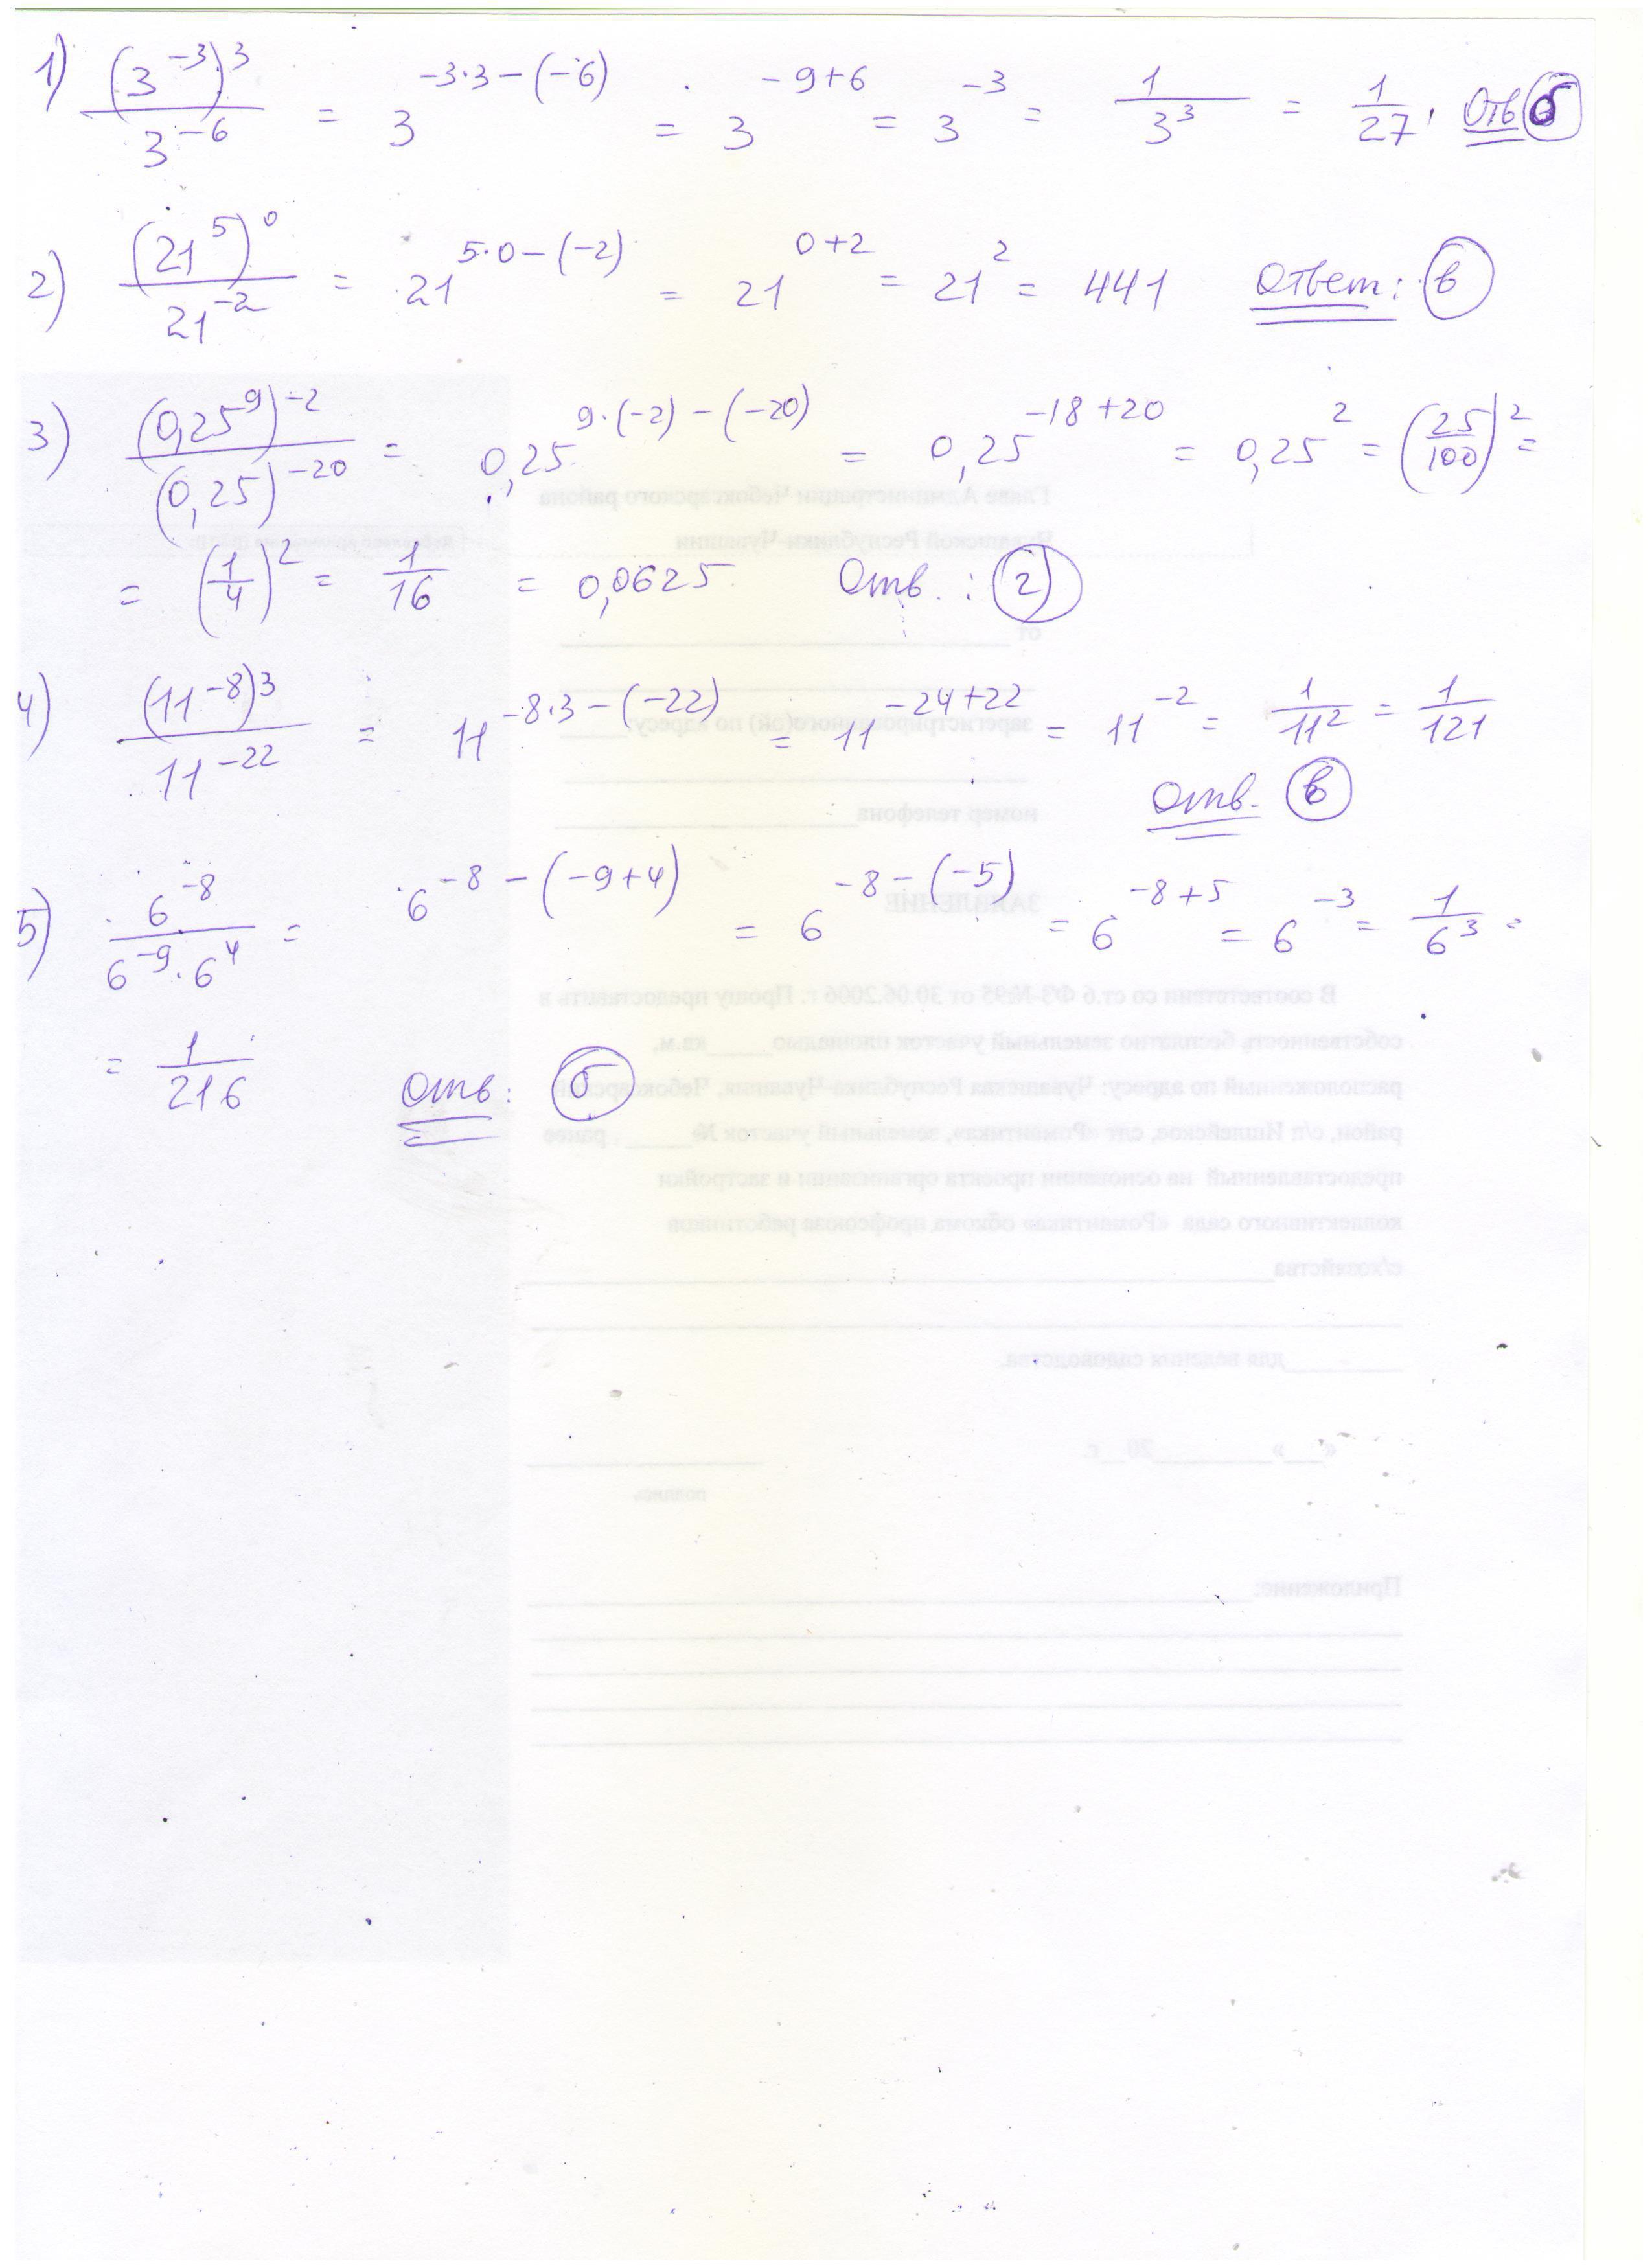 1) (3^-3)^3 / 3^-6 = 3^-3·3-(-6) = 3^-9+6 = 3^-3 = 1/3^3 = 1/27. Отв б
2) (21^5)^0 / 21^-2 = 21^5·0-(-2) = 21^0+2 = 21^2 = 441 Ответ: в
3) (0,25^9)^-2 / (0,25)^-20 = 0,25^9·(-2)-(-20) = 0,25^-18+20 = 0,25^2 = (25/100)^2 =
= (1/4)^2 = 1/16 = 0,0625 Отв.: г
4) (11^-8)^3 / 11^-22 = 11^-8·3-(-22) = 11^-24+22 = 11^-2 = 1/11^2 = 1/121
Отв. в
5) 6^-8 / 6^-9·6^4 = 6^-8-(-9+4) = 6^-8-(-5) = 6^-8+5 = 6^-3 = 1/6^3 =
= 1/216 Отв: б
Главе Администрации Чебоксарского района
Чувашской Республики-Чувашии
от
зарегистрированного(ой) по адресу:
номер телефона
ЗАЯВЛЕНИЕ
В соответствии со ст.6 ФЗ-№95 от 30.06.2006 г. Прошу предоставить в
собственность бесплатно земельный участок площадью_____кв.м,
расположенный по адресу: Чувашская Республика-Чувашия, Чебоксарский
район, с/п Ишлейское, снт «Романтика», земельный участок №_____, ранее
предоставленный на основании проекта организации и застройки
коллективного сада «Романтика» обкома профсоюза работников
с/хозяйства
для ведения садоводства.
«___»_________20__г.
подпись
Приложение: